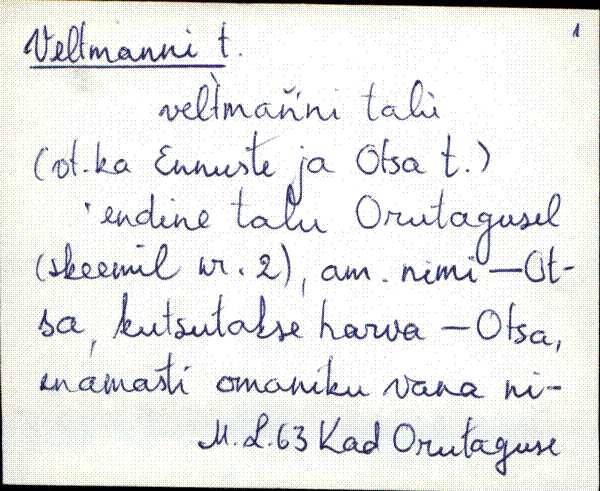 1
Veltmanni t.
vel̀tmaňni talu
(vt. ka Ennuste ja Otsa t.)
'endine talu Orutagusel
(skeemil nr. 2), am. nimi – Ot-
sa, kutsutakse harva – Otsa,
enamasti omaniku vana ni-
M. L. 63 Kad Orutaguse